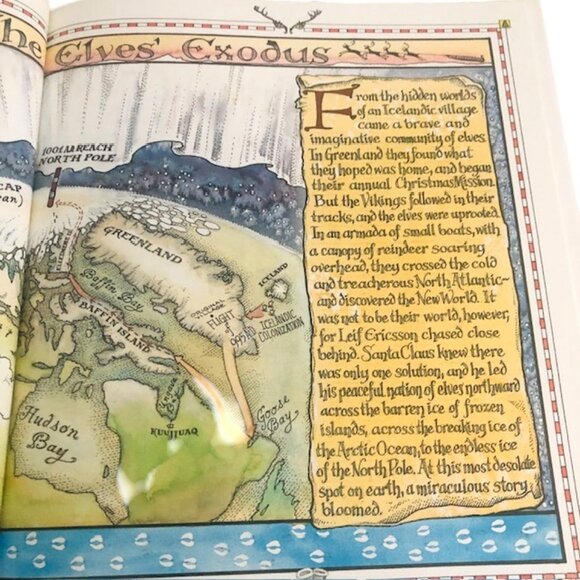 The Elves' Exodus
A
1001 AD REACH
NORTH POLE
CAP
GREENLAND
Baffin Bay
BAFFIN ISLAND
ORIGINAL
VILLAGE
FLIGHT
OF
995 AD
ICELAND
ICELANDIC
COLONIZATION
Ungava
Bay
KUUJJUAQ
Goose
Bay
Hudson
Bay
From the hidden worlds
of an Icelandic village
came a brave and
imaginative community of elves.
In Greenland they found what
they hoped was home, and began
their annual Christmas Mission.
But the Vikings followed in their
tracks, and the elves were uprooted.
In an armada of small boats, with
a canopy of reindeer soaring
overhead, they crossed the cold
and treacherous North Atlantic—
and discovered the New World. It
was not to be their world, however,
for Leif Ericsson chased close
behind. Santa Claus knew there
was only one solution, and he led
his peaceful nation of elves northward
across the barren ice of frozen
islands, across the breaking ice of
the Arctic Ocean, to the endless ice
of the North Pole. At this most desolate
spot on earth, a miraculous story
bloomed.